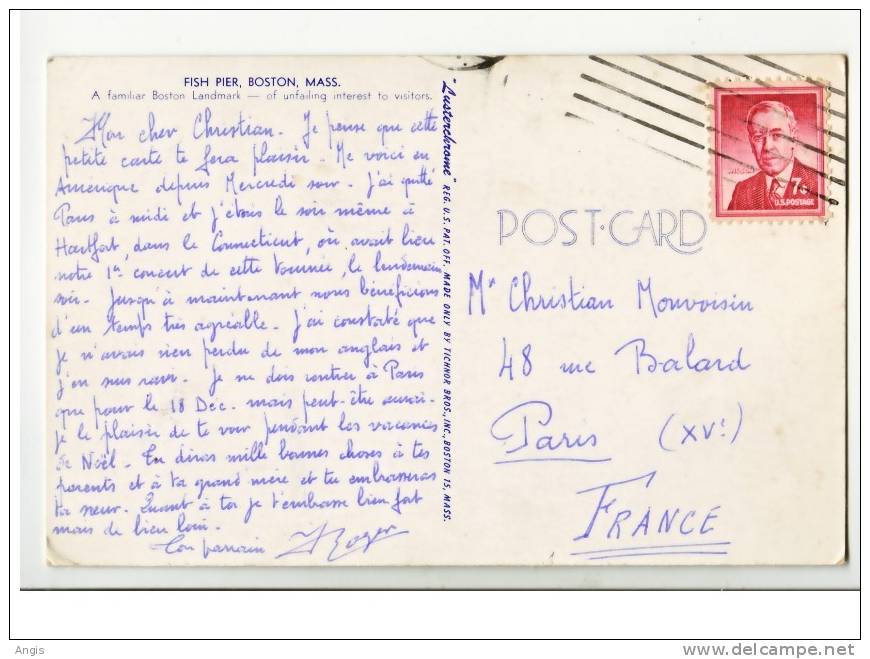 FISH PIER, BOSTON, MASS.
A familiar Boston Landmark — of unfailing interest to visitors.
Mon cher Christian. Je pense que cette
petite carte te fera plaisir. Me voici en
Amérique depuis Mercredi soir. J'ai quitté
Paris à midi et j'étais le soir même à
Hartfort, dans le Connecticut, où avait lieu
notre 1er concert de cette tournée, le lendemain
soir. Jusqu'à maintenant nous bénéficions
d'un temps très agréable. J'ai constaté que
je n'avais rien perdu de mon anglais et
j'en suis ravi. Je ne dois rentrer à Paris
que pour le 18 Déc. mais peut-être aurai-
je le plaisir de te voir pendant les vacances
de Noël. Tu diras mille bonnes choses à tes
parents et à ta grand mère et tu embrasseras
ta sœur. Quant à toi je t'embrasse bien fort
mais de bien loin.
Ton parrain Roger
"Lusterchrome" REG. U.S. PAT. OFF. MADE ONLY BY TICHNOR BROS., INC., BOSTON 15, MASS.
WILSON
7¢
U.S. POSTAGE
POST-CARD
Mr Christian Monvoisin
48 rue Balard
Paris (XVe)
FRANCE
Angis
www.delcampe.net